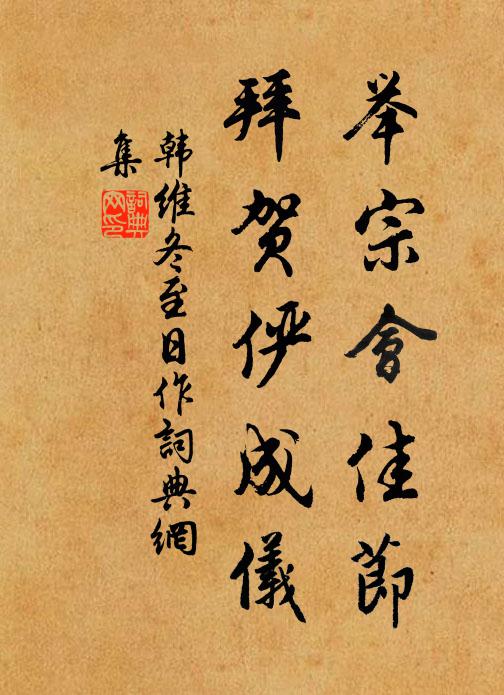 举宗會佳節
拜贺俨成儀
韩維冬至日作詞典網
集
詞典
网印